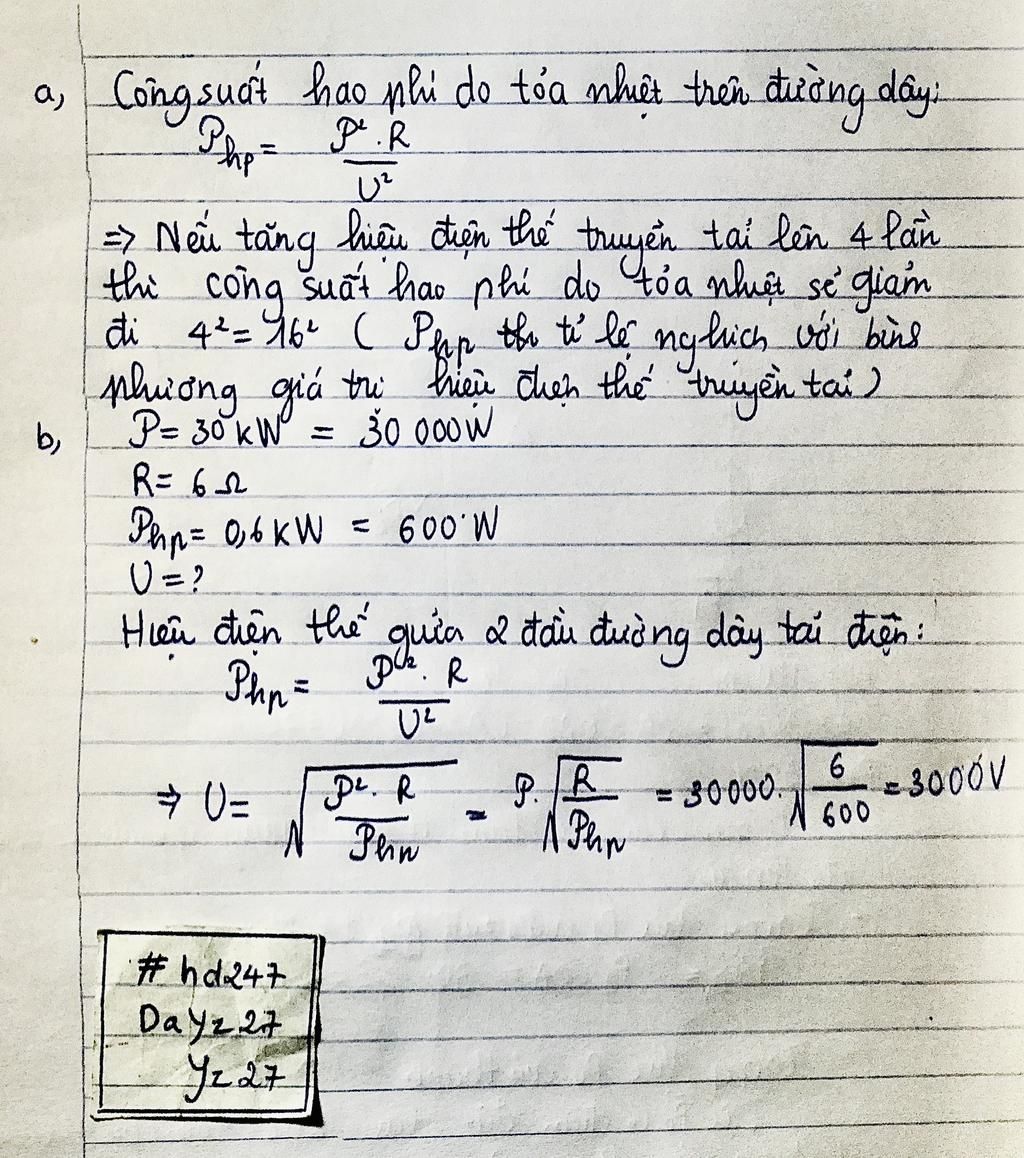 a, Công suất hao phí do tỏa nhiệt trên đường dây:
P_hp = P² . R / U²
=> Nếu tăng hiệu điện thế truyền tải lên 4 lần
thì công suất hao phí do tỏa nhiệt sẽ giảm
đi 4² = 16² ( P_hp tỉ lệ nghịch với bình
phương giá trị hiệu điện thế truyền tải )
b, P = 30 kW = 30 000 W
R = 6 Ω
P_hp = 0,6 kW = 600 W
U = ?
Hiệu điện thế giữa 2 đầu đường dây tải điện:
P_hp = P² . R / U²
=> U = √(P² . R / P_hp) = P. √(R / P_hp) = 30000. √(6 / 600) = 3000 V
# hd247
Dayz27
Yz27